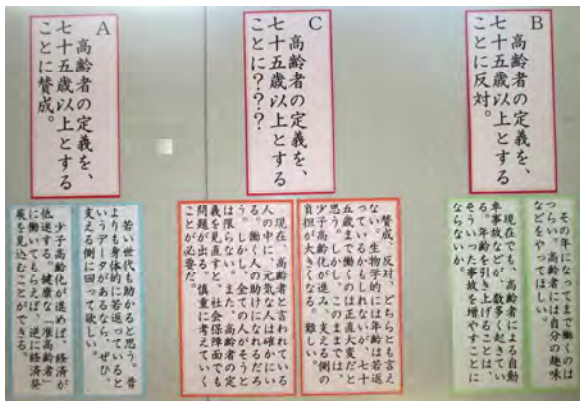 B
高齢者の定義を、
七十五歳以上とする
ことに反対。
その年になってまで働くのは
つらい。高齢者には自分の趣味
などをやってほしい。
現在でも、高齢者による自動
車事故などが、数多く起きてい
る。年齢を引き上げることは、
そういった事故を増やすことに
ならないか。
C
高齢者の定義を、
七十五歳以上とする
ことに???
賛成、反対、どちらとも言え
ない。生物学的には年齢は若返
っているかもしれないが、七十
五歳まで働くのは正直大変だと
思う。しかし、このままでは、
少子高齢化が進み、支える側の
負担が大きくなる。難しい。
現在、高齢者と言われている
人の中に、元気な人は確かにい
る。働く人の助けになれるだろ
う。しかし、全ての人がそうと
は限らない。また、高齢者の定
義を見直すと、社会保障面でも
問題が出る。慎重に考えていく
ことが必要だ。
A
高齢者の定義を、
七十五歳以上とする
ことに賛成。
若い世代も助かると思う。昔
よりも身体的に若返っていると
いうデータがあるなら、ぜひ、
支える側に回って欲しい。
少子高齢化が進めば、経済が
低迷する。健康な「准高齢者」
に働いてもらえば、逆に経済発
展を見込むことができる。